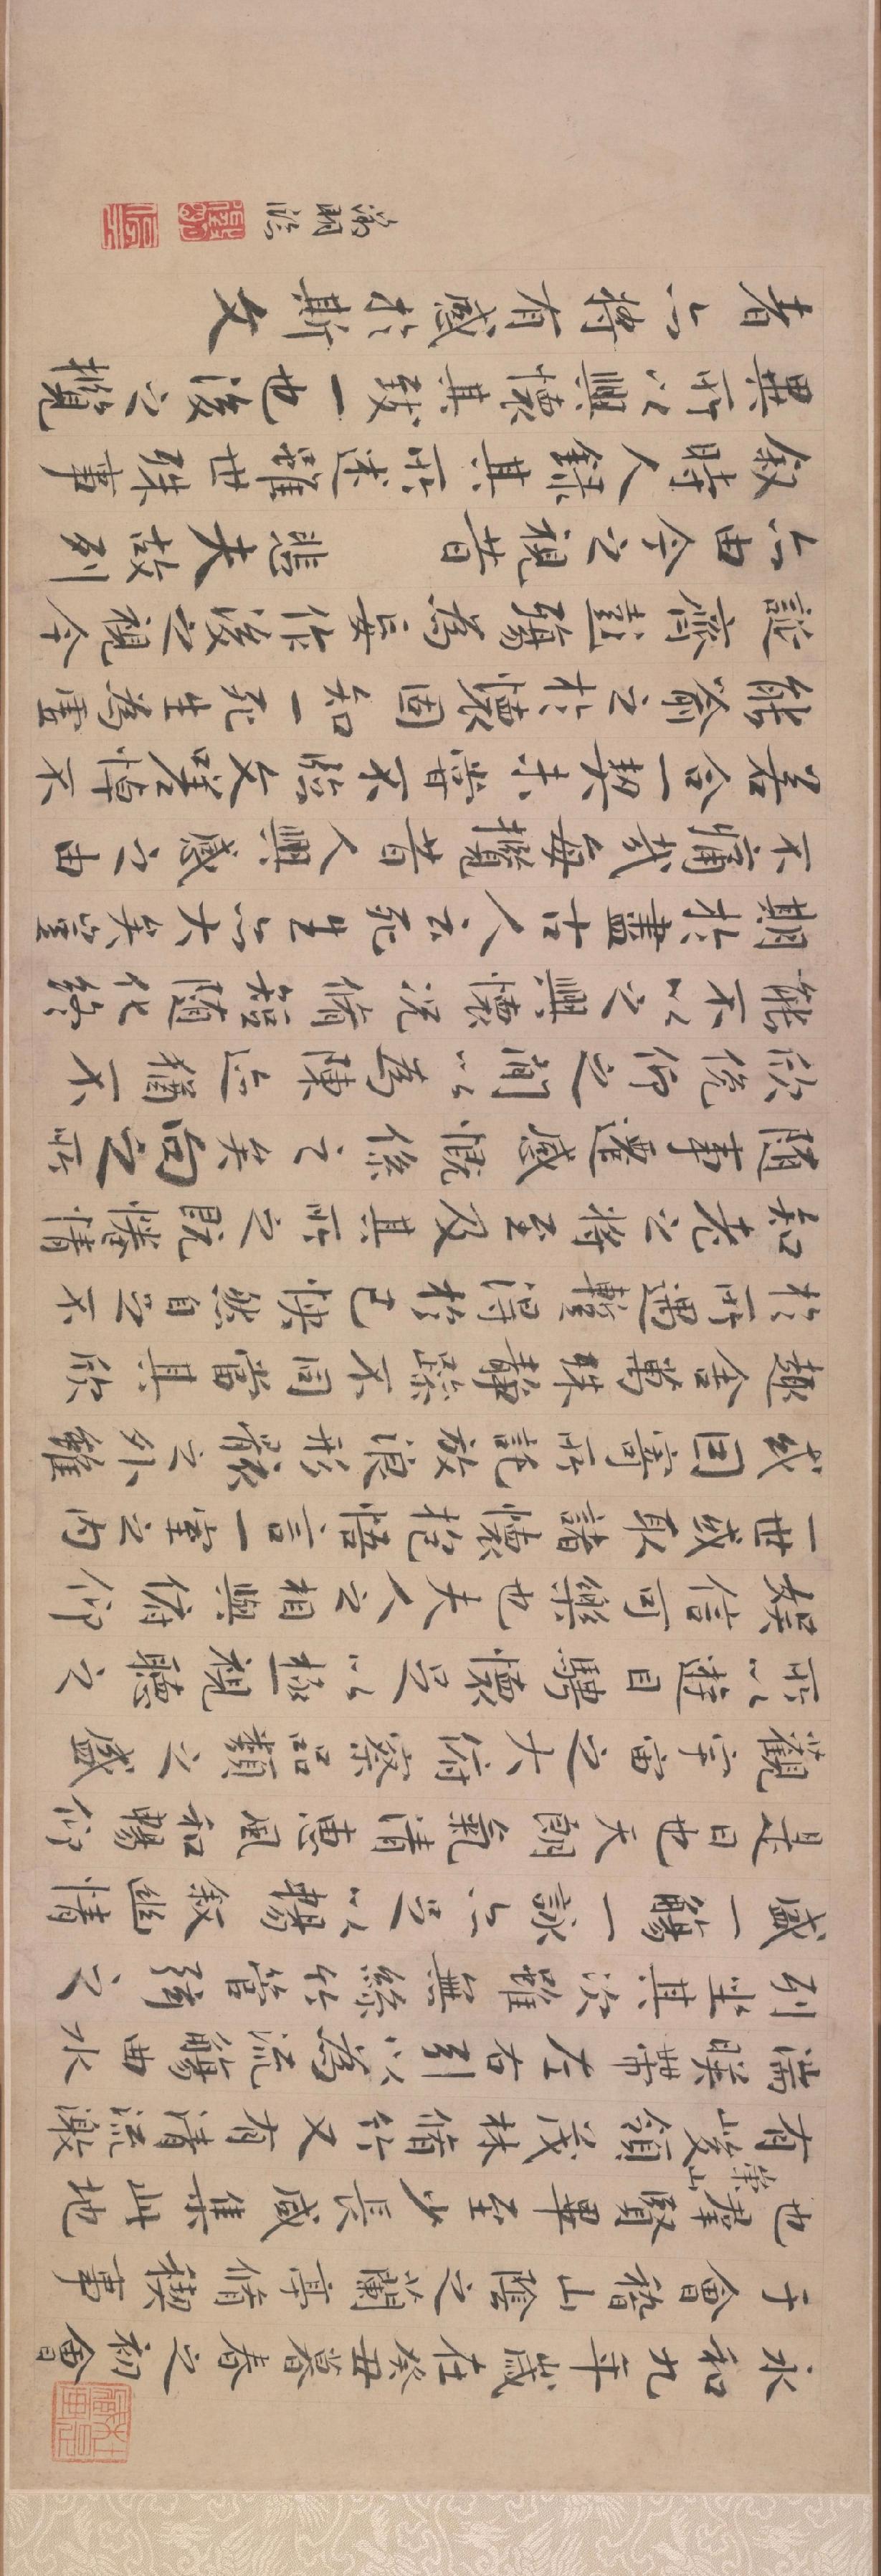 永和九年歲在癸丑暮春之初會
于會稽山陰之蘭亭脩稧事
也羣賢畢至少長咸集此地
有崇山峻領茂林脩竹又有清流激
湍暎帶左右引以為流觴曲水
列坐其次雖無絲竹管弦之
盛一觴一詠亦足以暢敘幽情
是日也天朗氣清惠風和暢仰
觀宇宙之大俯察品類之盛
所以遊目騁懷足以極視聽之
娛信可樂也夫人之相與俯仰
一世或取諸懷抱悟言一室之內
或因寄所託放浪形骸之外雖
趣舍萬殊靜躁不同當其欣
於所遇暫得於己快然自足不
知老之將至及其所之既惓情
隨事遷感慨係之矣向之所
欣俛仰之間以為陳迹猶不
能不以之興懷況脩短隨化終
期於盡古人云死生亦大矣豈
不痛哉每攬昔人興感之由
若合一契未嘗不臨文嗟悼不
能喻之於懷固知一死生為虛
誕齊彭殤為妄作後之視今
亦由今之視昔 悲夫故列
敘時人錄其所述雖世殊事
異所以興懷其致一也後之攬
者亦將有感於斯文
徵明臨